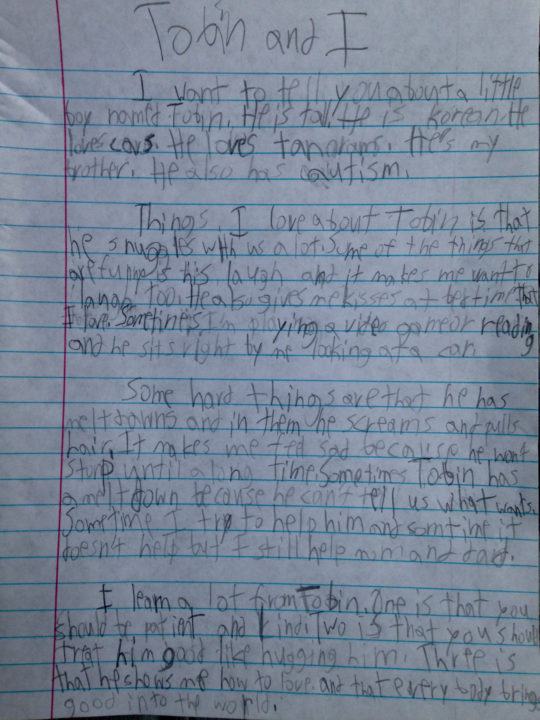 Tobin and I
I want to tell you about a little
boy named Tobin. He is tall. He is korean. He
loves cars. He loves tangrams. He's my
brother. He also has autism.
Things I love about Tobin is that
he snuggles with us a lot. Some of the things that
are funny is his laugh and it makes me want to
laugh too. He also gives me kisses at bertime that
I love. Sometimes I'm playing a video game or reading
and he sits right by me looking at a car.
Some hard things are that he has
meltdowns and in them he screams and pulls
hair. It makes me feel sad because he wont
stop until a long time. Sometimes Tobin has
a meltdown because he can't tell us what wants.
Sometime I try to help him and somtime it
doesn't help but I still help mom and dad.
I learn a lot from Tobin. One is that you
should be patient and kind. Two is that you should
treat him good like hugging him. Three is
that he shows me how to love. and that every body brings
good into the world.